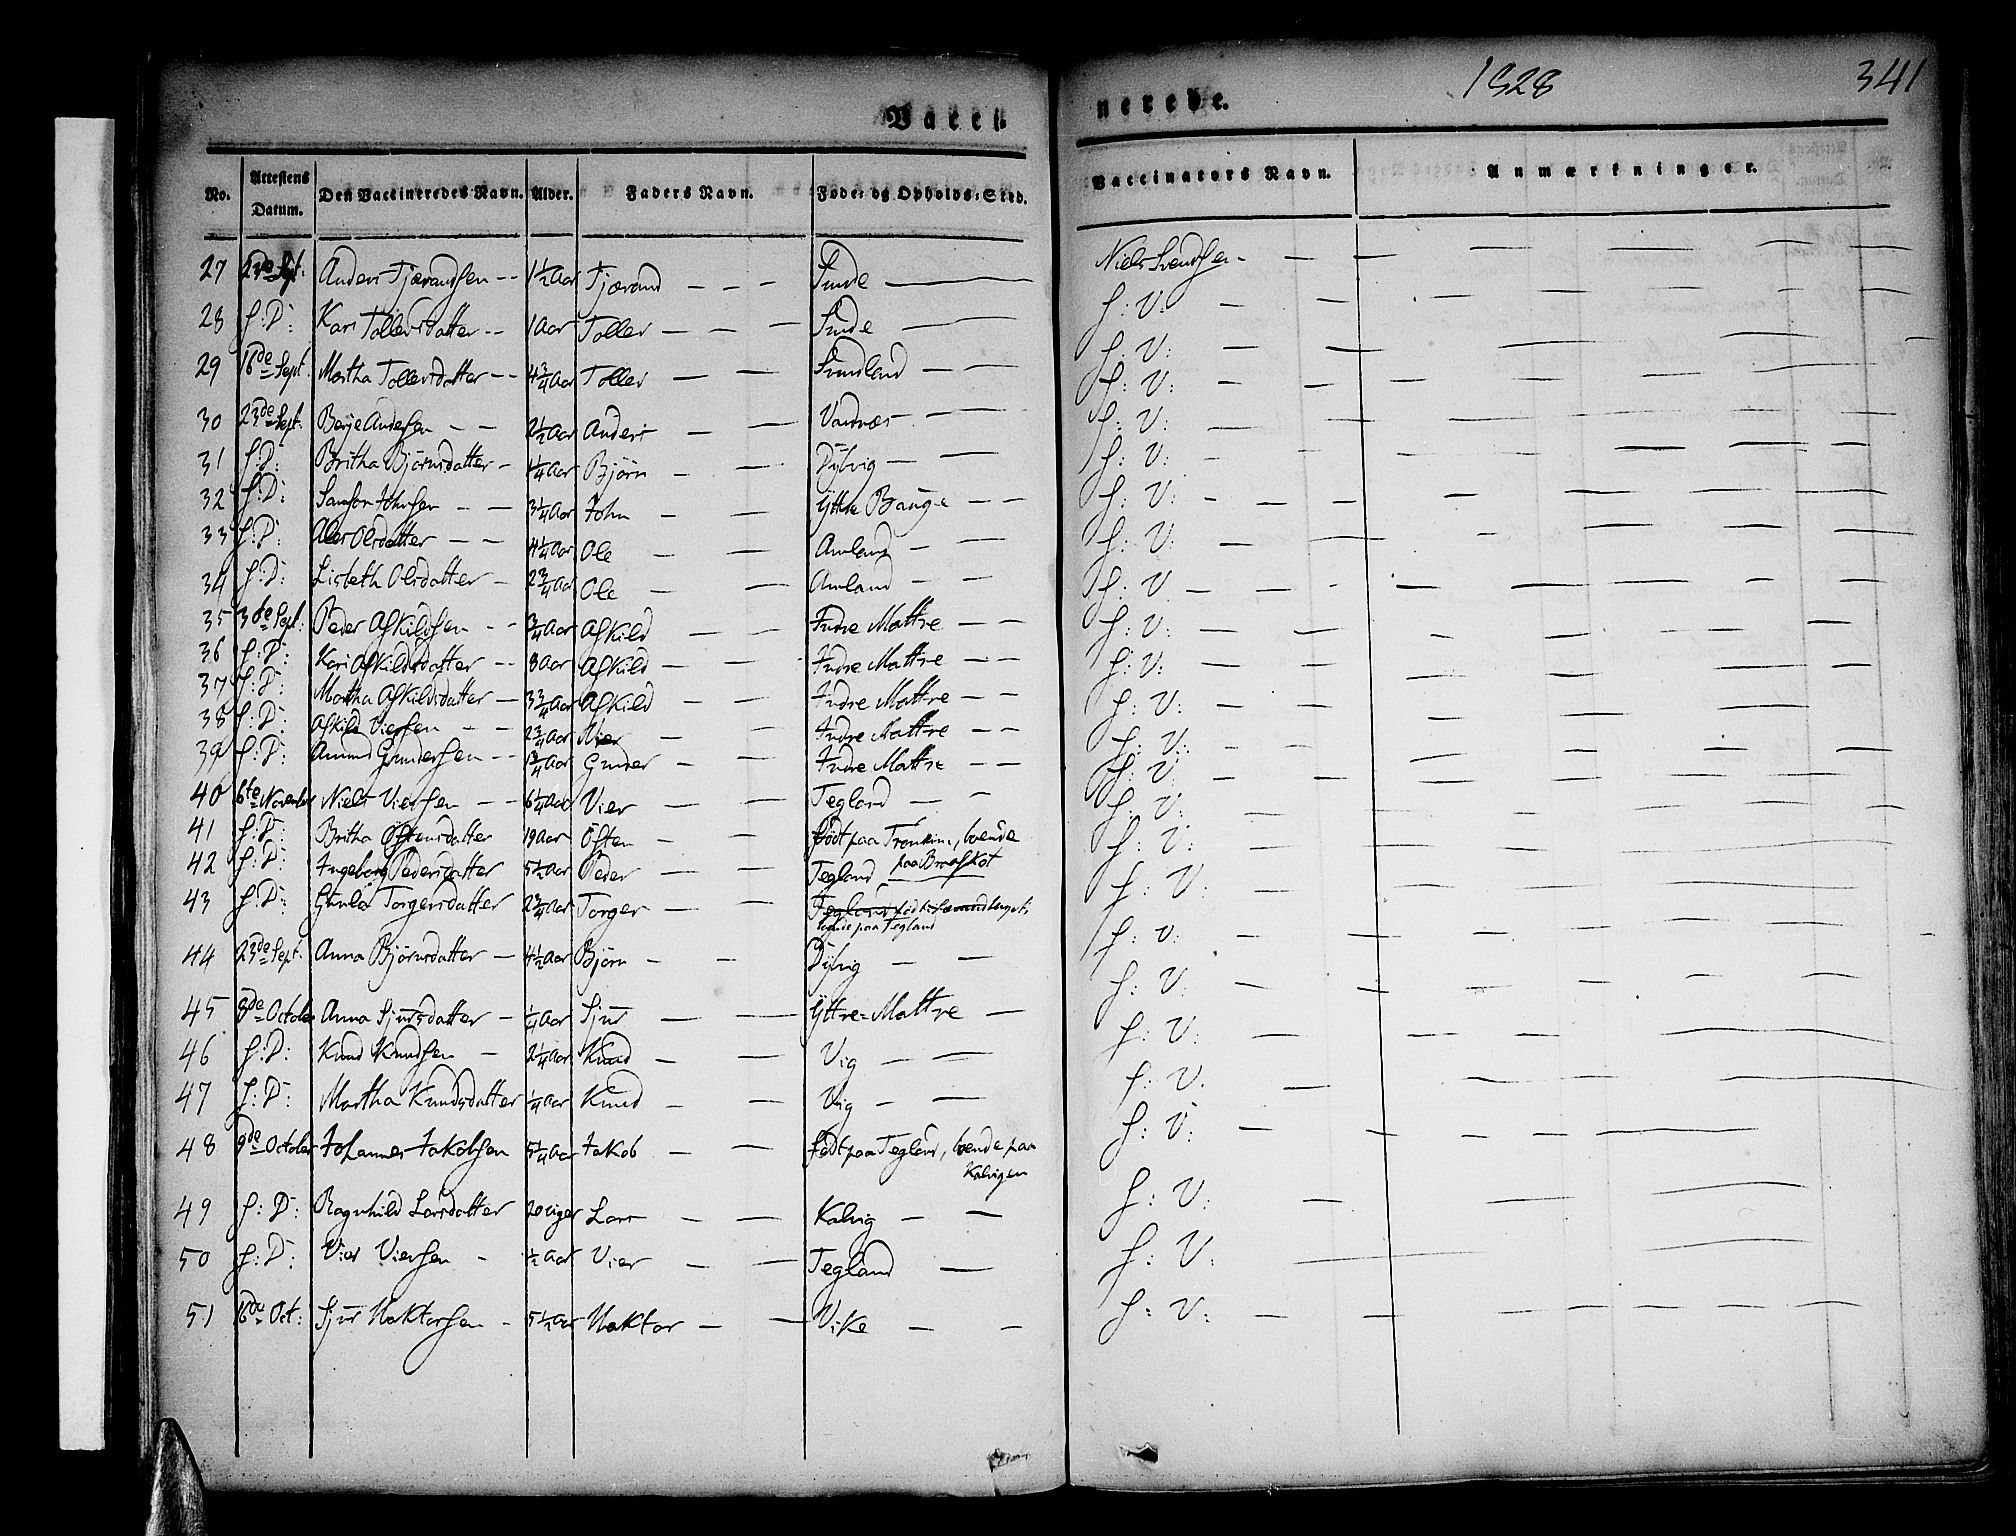 Vacci
nerede.
1828
341
No. Attestens Datum. Den Vaccineredes Navn. Alder. Faders Navn. Føde= og Opholds=Sted. Vaccinators Navn. Anmærkninger.
27 23de Sept: Anders Tjærandsen -- 1½ Aar Tjærand --- Sunde — Niels Svendsen — —
28 S: D: Kari Tollevsdatter -- 1 Aar Tollev — — — Sunde — S: V: —
29 16de Sept. Martha Tollevsdatter -- 4¾ Aar Tollev — — Sundland — — — S: V: —
30 23de Sept. Børje Andersen — — 2½ Aar Anders — — — — S: V: —
31 S: D: Britha Bjørnsdatter — 1¼ Aar Bjørn — — Dÿbvig — — — S: V: —
32 S: D: Samson Johnsen — — 3¼ Aar John — — Ÿttre Bauge — — S: V: —
33 S: D: Olsdatter — — 4¼ Aar Ole — — Amland — — S: V: —
34 S: D: Lisbeth Olsdatter — 2¾ Aar Ole — — Amland — — S: V: —
35 Sept: Peder Askildsen — — ¾ Aar Askild — — Indre Mattre — — S: V: —
36 S: D: Kari Askildsdatter -- 8 Aar Askild — — — Indre Mattre — — S: V: —
37 S: D: Martha Askildsdatter — 3¾ Aar Askild — — Indre Mattre — — S: V: —
38 S: D: Askild Viersen — — 2¾ Aar Vier — — Indre Mattre — — S: V: —
39 S: D: Amund Gundersen — — 1¾ Aar Gunder — — Indre Mattre — — S: V: —
40 6te November Niels Viersen — — 6¼ Aar Vier — — Tegland — — S: V: —
41 S: D: Britha Østensdatter 19 Aar Østen — — født paa , boende
paa
42 S: D: Ingeborg Pedersdatter 5½ Aar Peder — — Tegland S: V: —
43 S: D: Torgersdatter 2¾ Aar Torger — — Tegland født
boende paa Tegland S: V: —
44 23de Sept. Anna Bjørnsdatter — 4½ Aar Bjørn — — Dÿbvig — — S: V: —
45 October Anna Sjursdatter — ¼ Aar Sjur — — Ÿttre=Mattre — S: V: —
46 S: D: Knud Knudsen — 2¼ Aar Knud — — Vig — — S: V: —
47 S: D: Martha Knudsdatter ¼ Aar Knud — — Vig — — S: V: —
48 9de October Johannes Jakobsen 5¼ Aar Jakob — — født paa Tegland, boende paa
Kalvigen S: V: —
49 S: D: Ragnhild Larsdatter Lars — — Kalvig — — S: V: —
50 S: D: Vier Viersen — ½ Aar Vier — — Tegland — S: V: —
51 16de Oct: Sjur Haktorsen — 5½ Aar Haktor — — Vike — — S: V: —